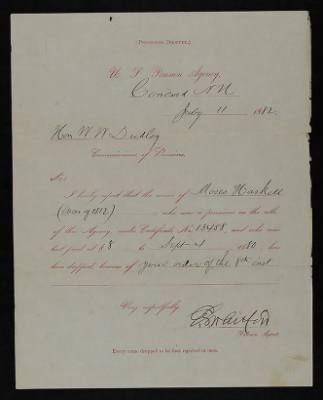 (PENSIONER DROPPED.)
U. S. Pension Agency,
Concord N H
July 11 1882
Hon W W Dudley
Commissioner of Pensions.
Sir:
I hereby report that the name of Moses Haskell
(War of 1812) who was a pensioner on the rolls
of this Agency, under Certificate No. 13458 and who was
last paid at $ 8 to Sept 4 1880 has
been dropped, because of your order of the 8th inst
Very respectfully,
Pension Agent.
Every name dropped to be thus reported at once.